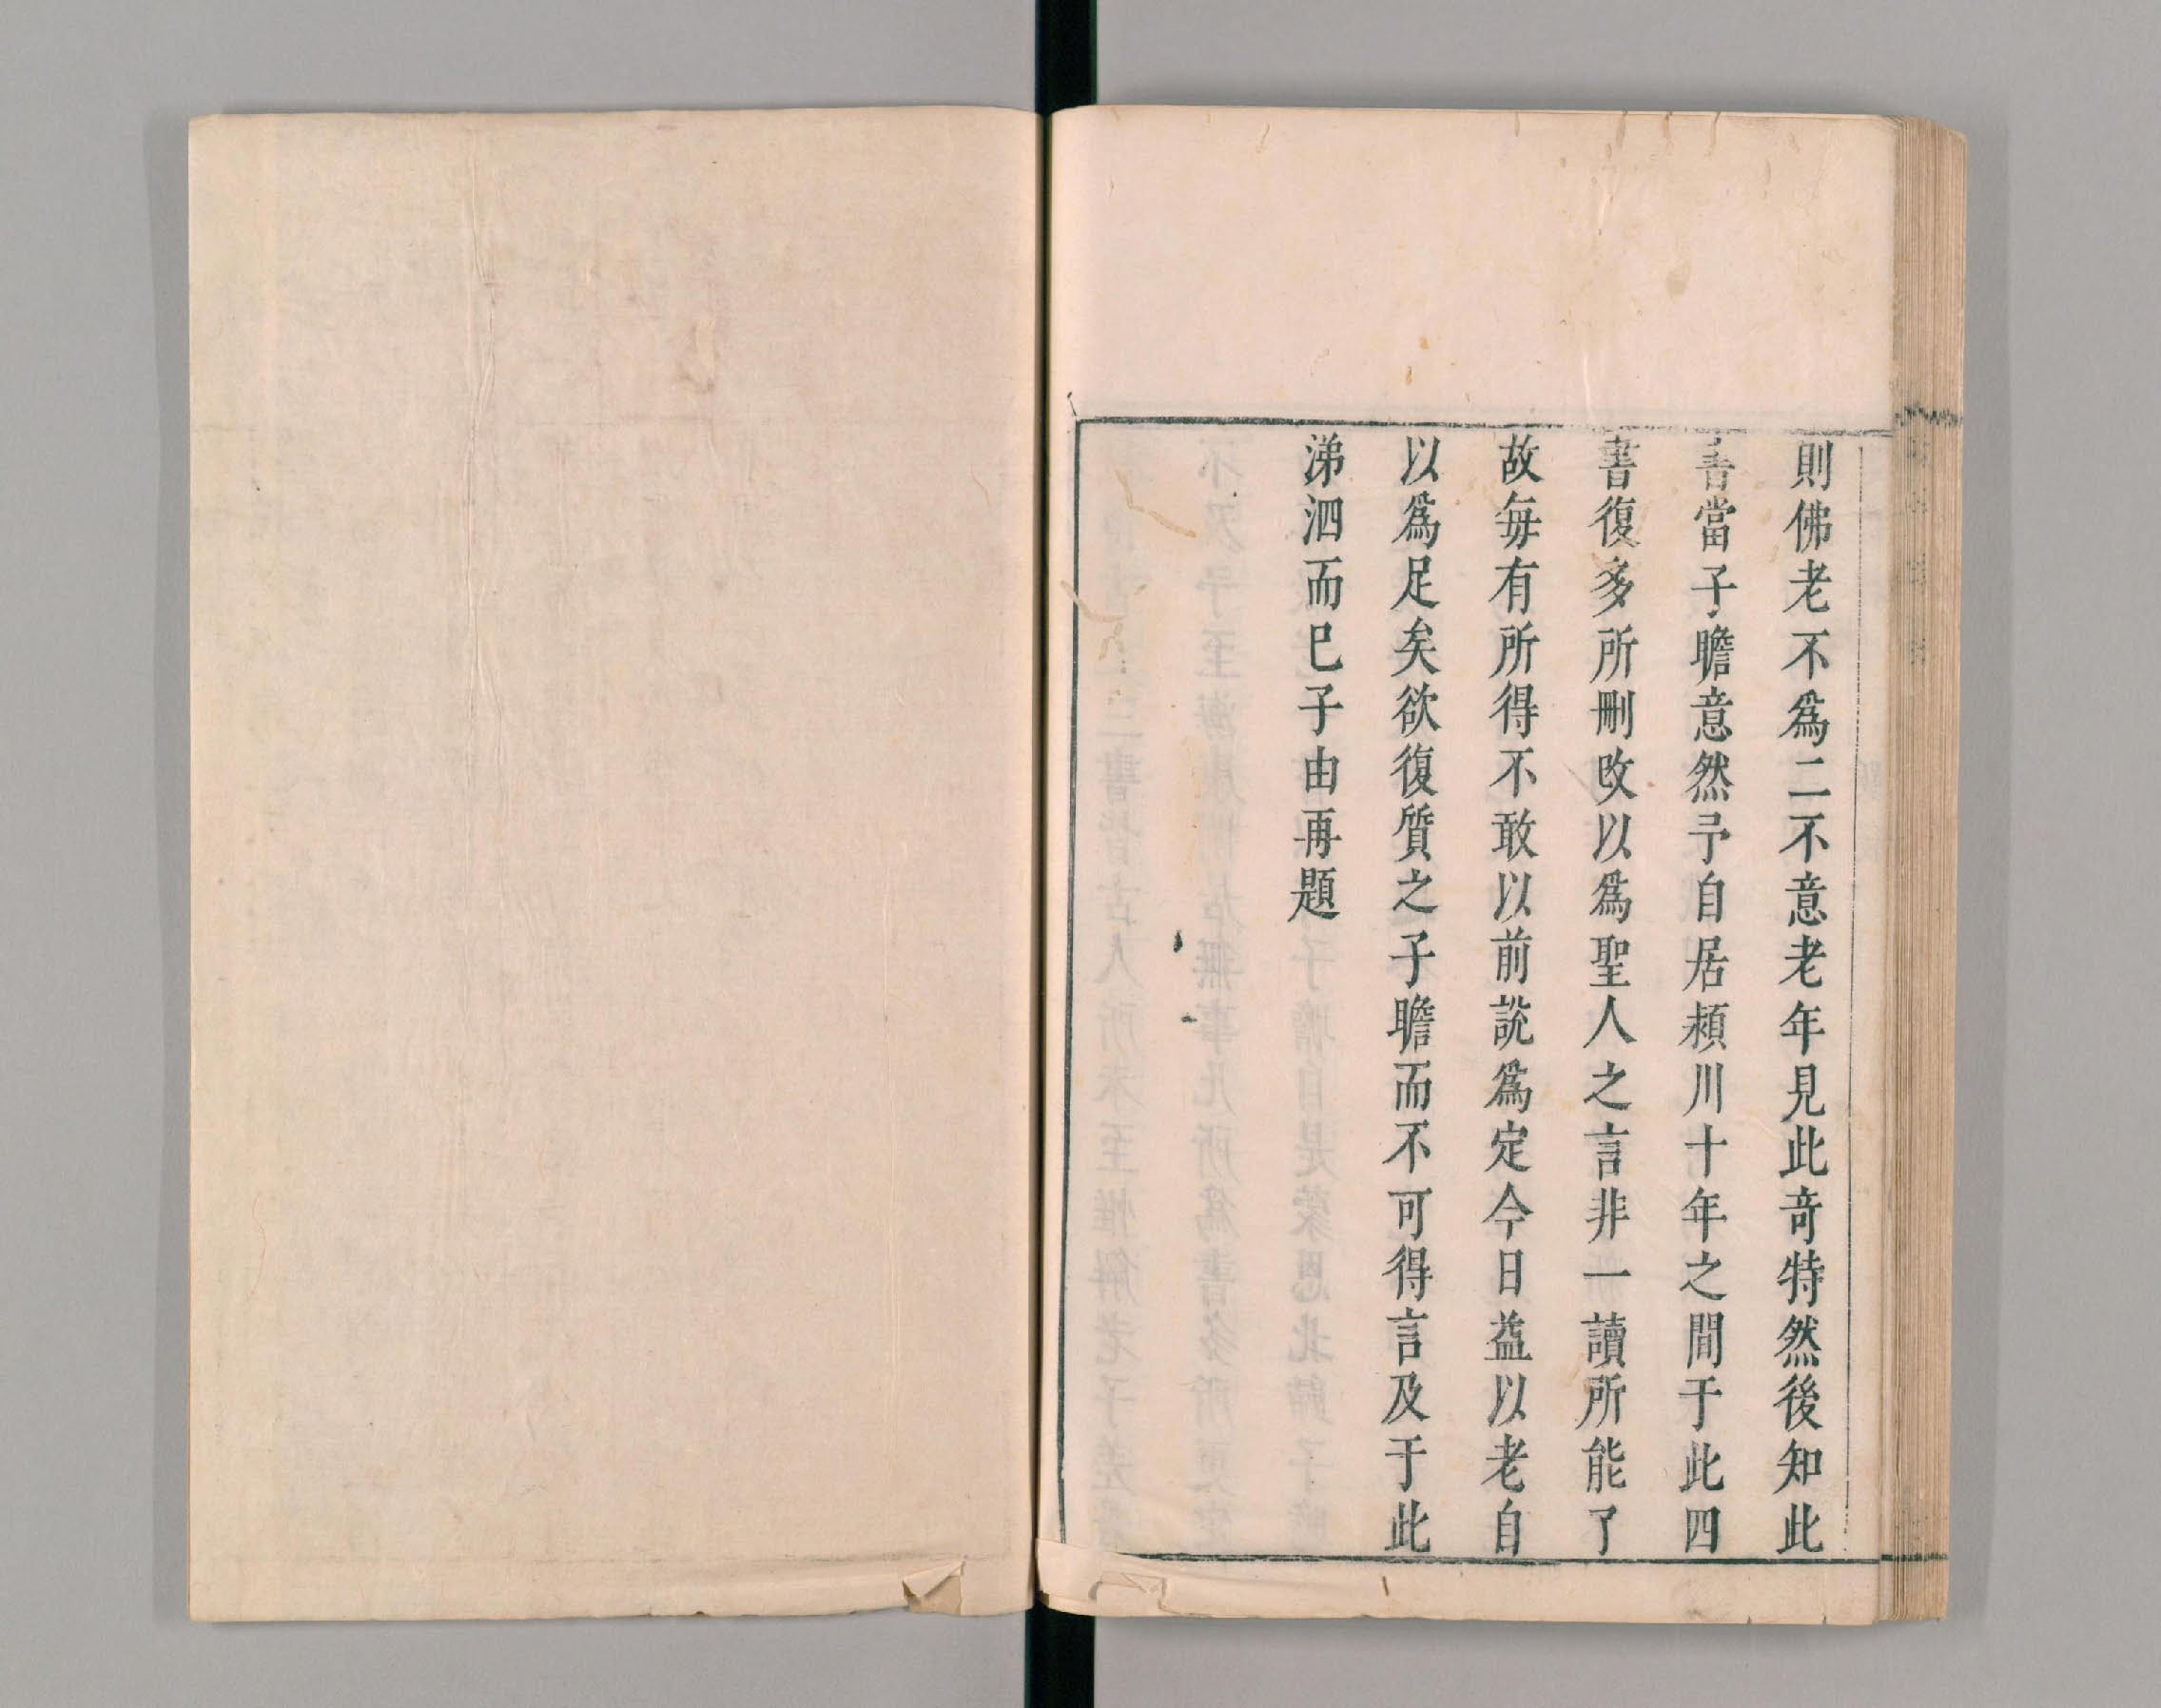 則佛老不爲二不意老年見此竒特然後知此
書當子瞻意然予自居潁川十年之間于此四
書復多所刪改以爲聖人之言非一讀所能了
故每有所得不敢以前說爲定今日益以老自
以爲足矣欲復質之子瞻而不可得言及于此
涕泗而巳子由再題